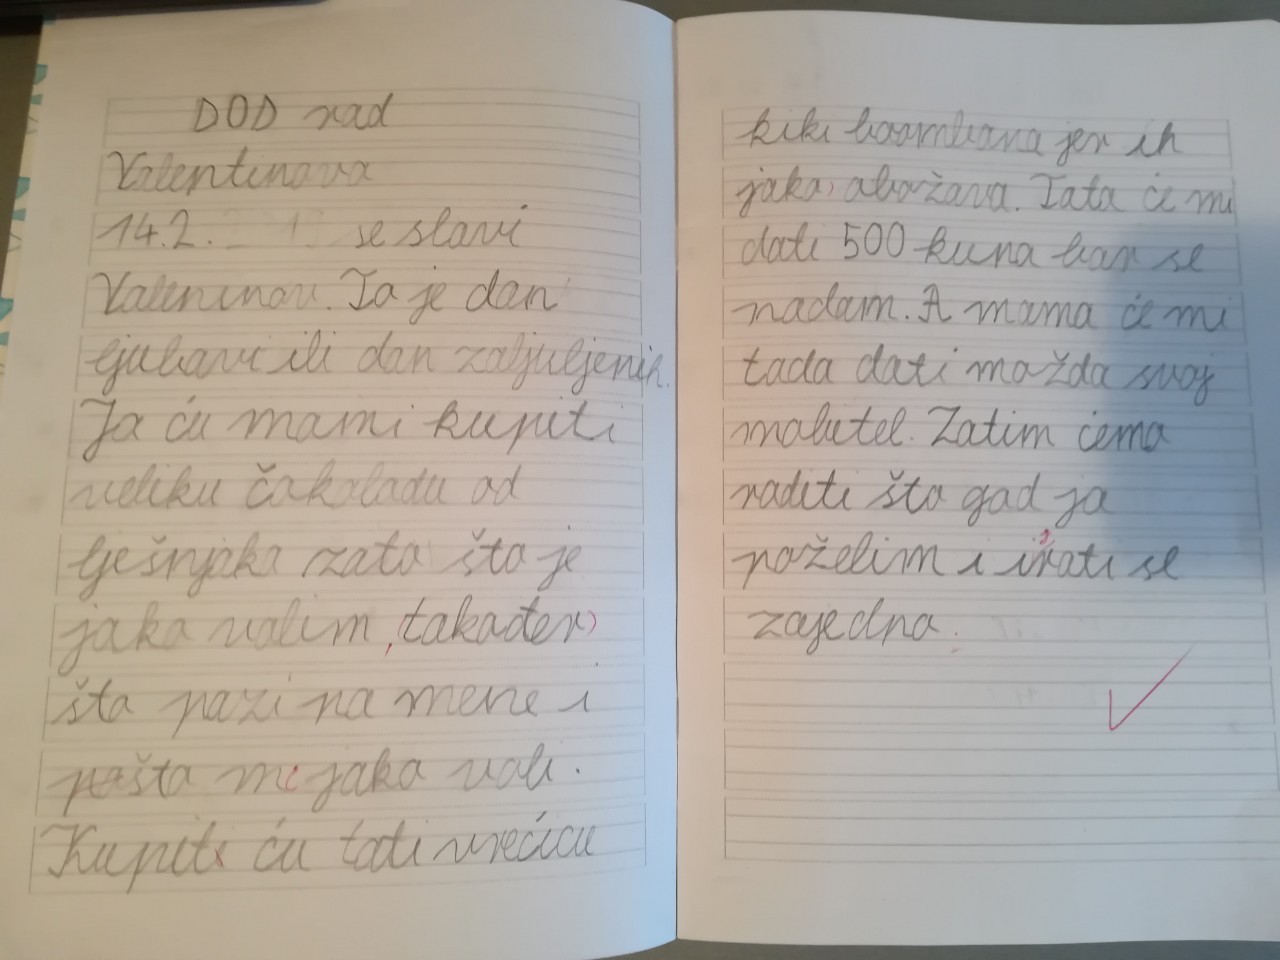 DOD rad
Valentinovo
14.2. se slavi
Valeninov. To je dan
ljubavi ili dan zaljuljenih.
Ja ću mami kupiti
veliku čokoladu od
lješnjaka zato što je
jako volim, (također)
što pazi na mene i
pošto me jako voli.
Kupiti ću tati vrećicu
kiki boombona jer ih
jako obožava. Tata će mi
dati 500 kuna bar se
nadam. A mama će mi
tada dati možda svoj
mobitel. Zatim ćemo
raditi što god ja
poželim i irati se
zajedno.